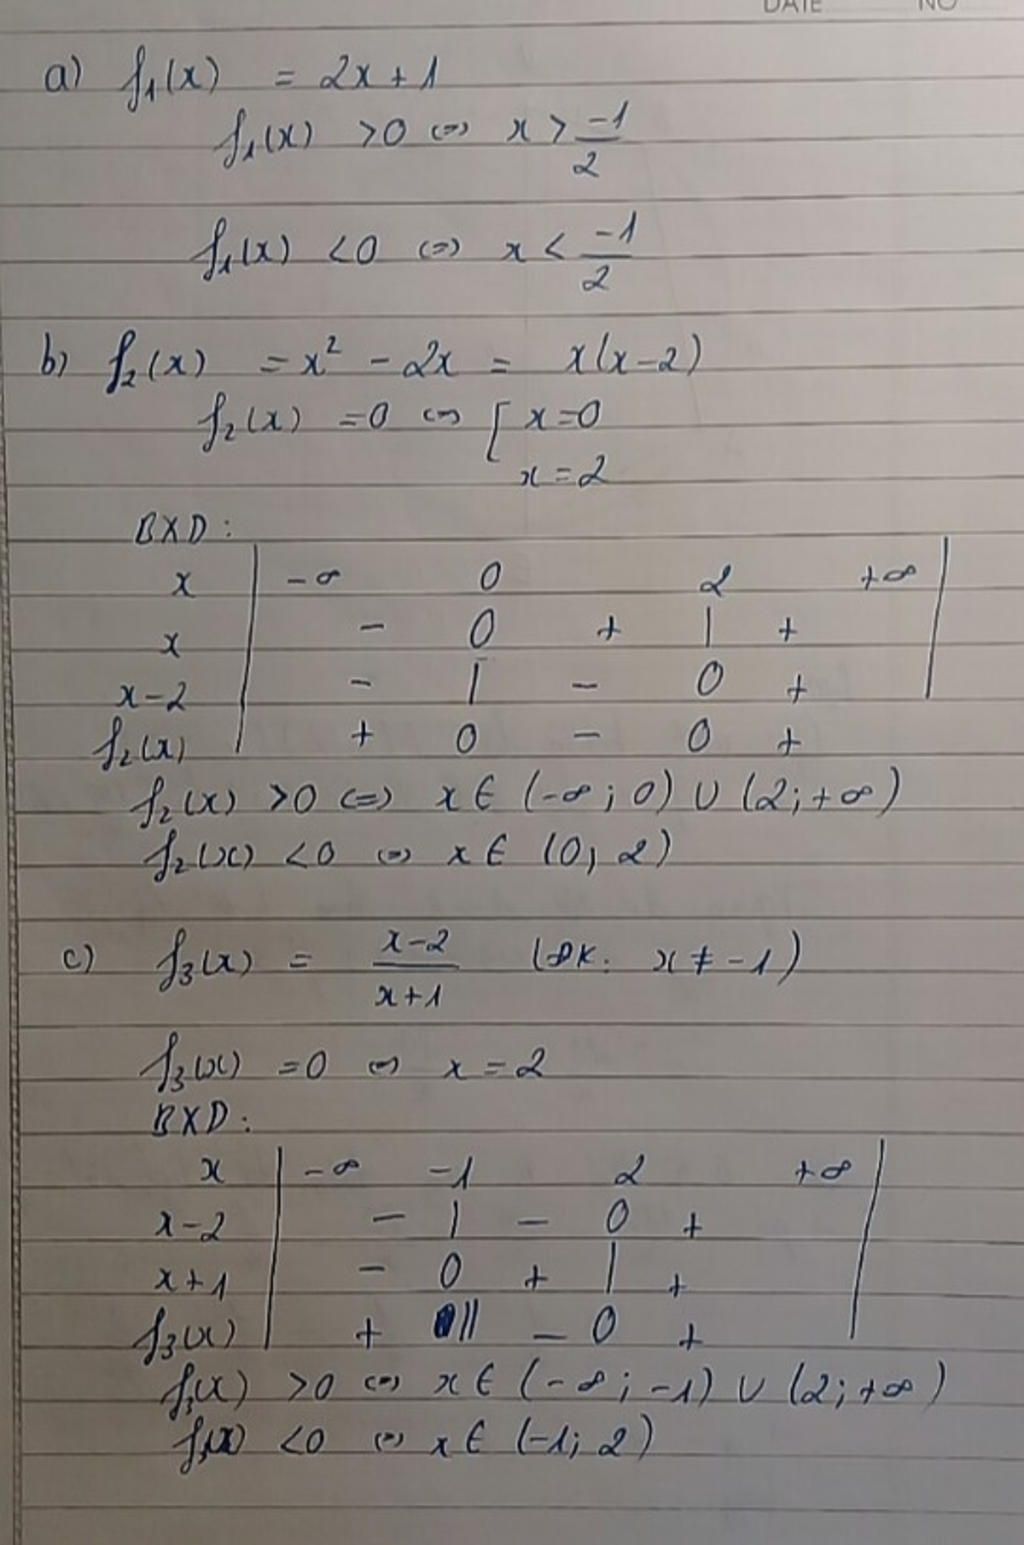 DATE NO
a) f₁(x) = 2x + 1
f₁(x) > 0 ⇔ x > -1/2
f₁(x) < 0 ⇔ x < -1/2
b) f₂(x) = x² - 2x = x(x-2)
f₂(x) = 0 ⇔ [ x = 0
x = 2
BXD:
x | -∞ 0 2 +∞ |
x | - 0 + | +
x-2 | - | - 0 +
f₂(x) | + 0 - 0 +
f₂(x) > 0 ⇔ x ∈ (-∞; 0) ∪ (2; +∞)
f₂(x) < 0 ⇔ x ∈ (0; 2)
c) f₃(x) = (x-2)/(x+1) (ĐK: x ≠ -1)
f₃(x) = 0 ⇔ x = 2
BXD:
x | -∞ -1 2 +∞ |
x-2 | - | - 0 +
x+1 | - 0 + | +
f₃(x) | + || - 0 +
f₃(x) > 0 ⇔ x ∈ (-∞; -1) ∪ (2; +∞)
f₃(x) < 0 ⇔ x ∈ (-1; 2)